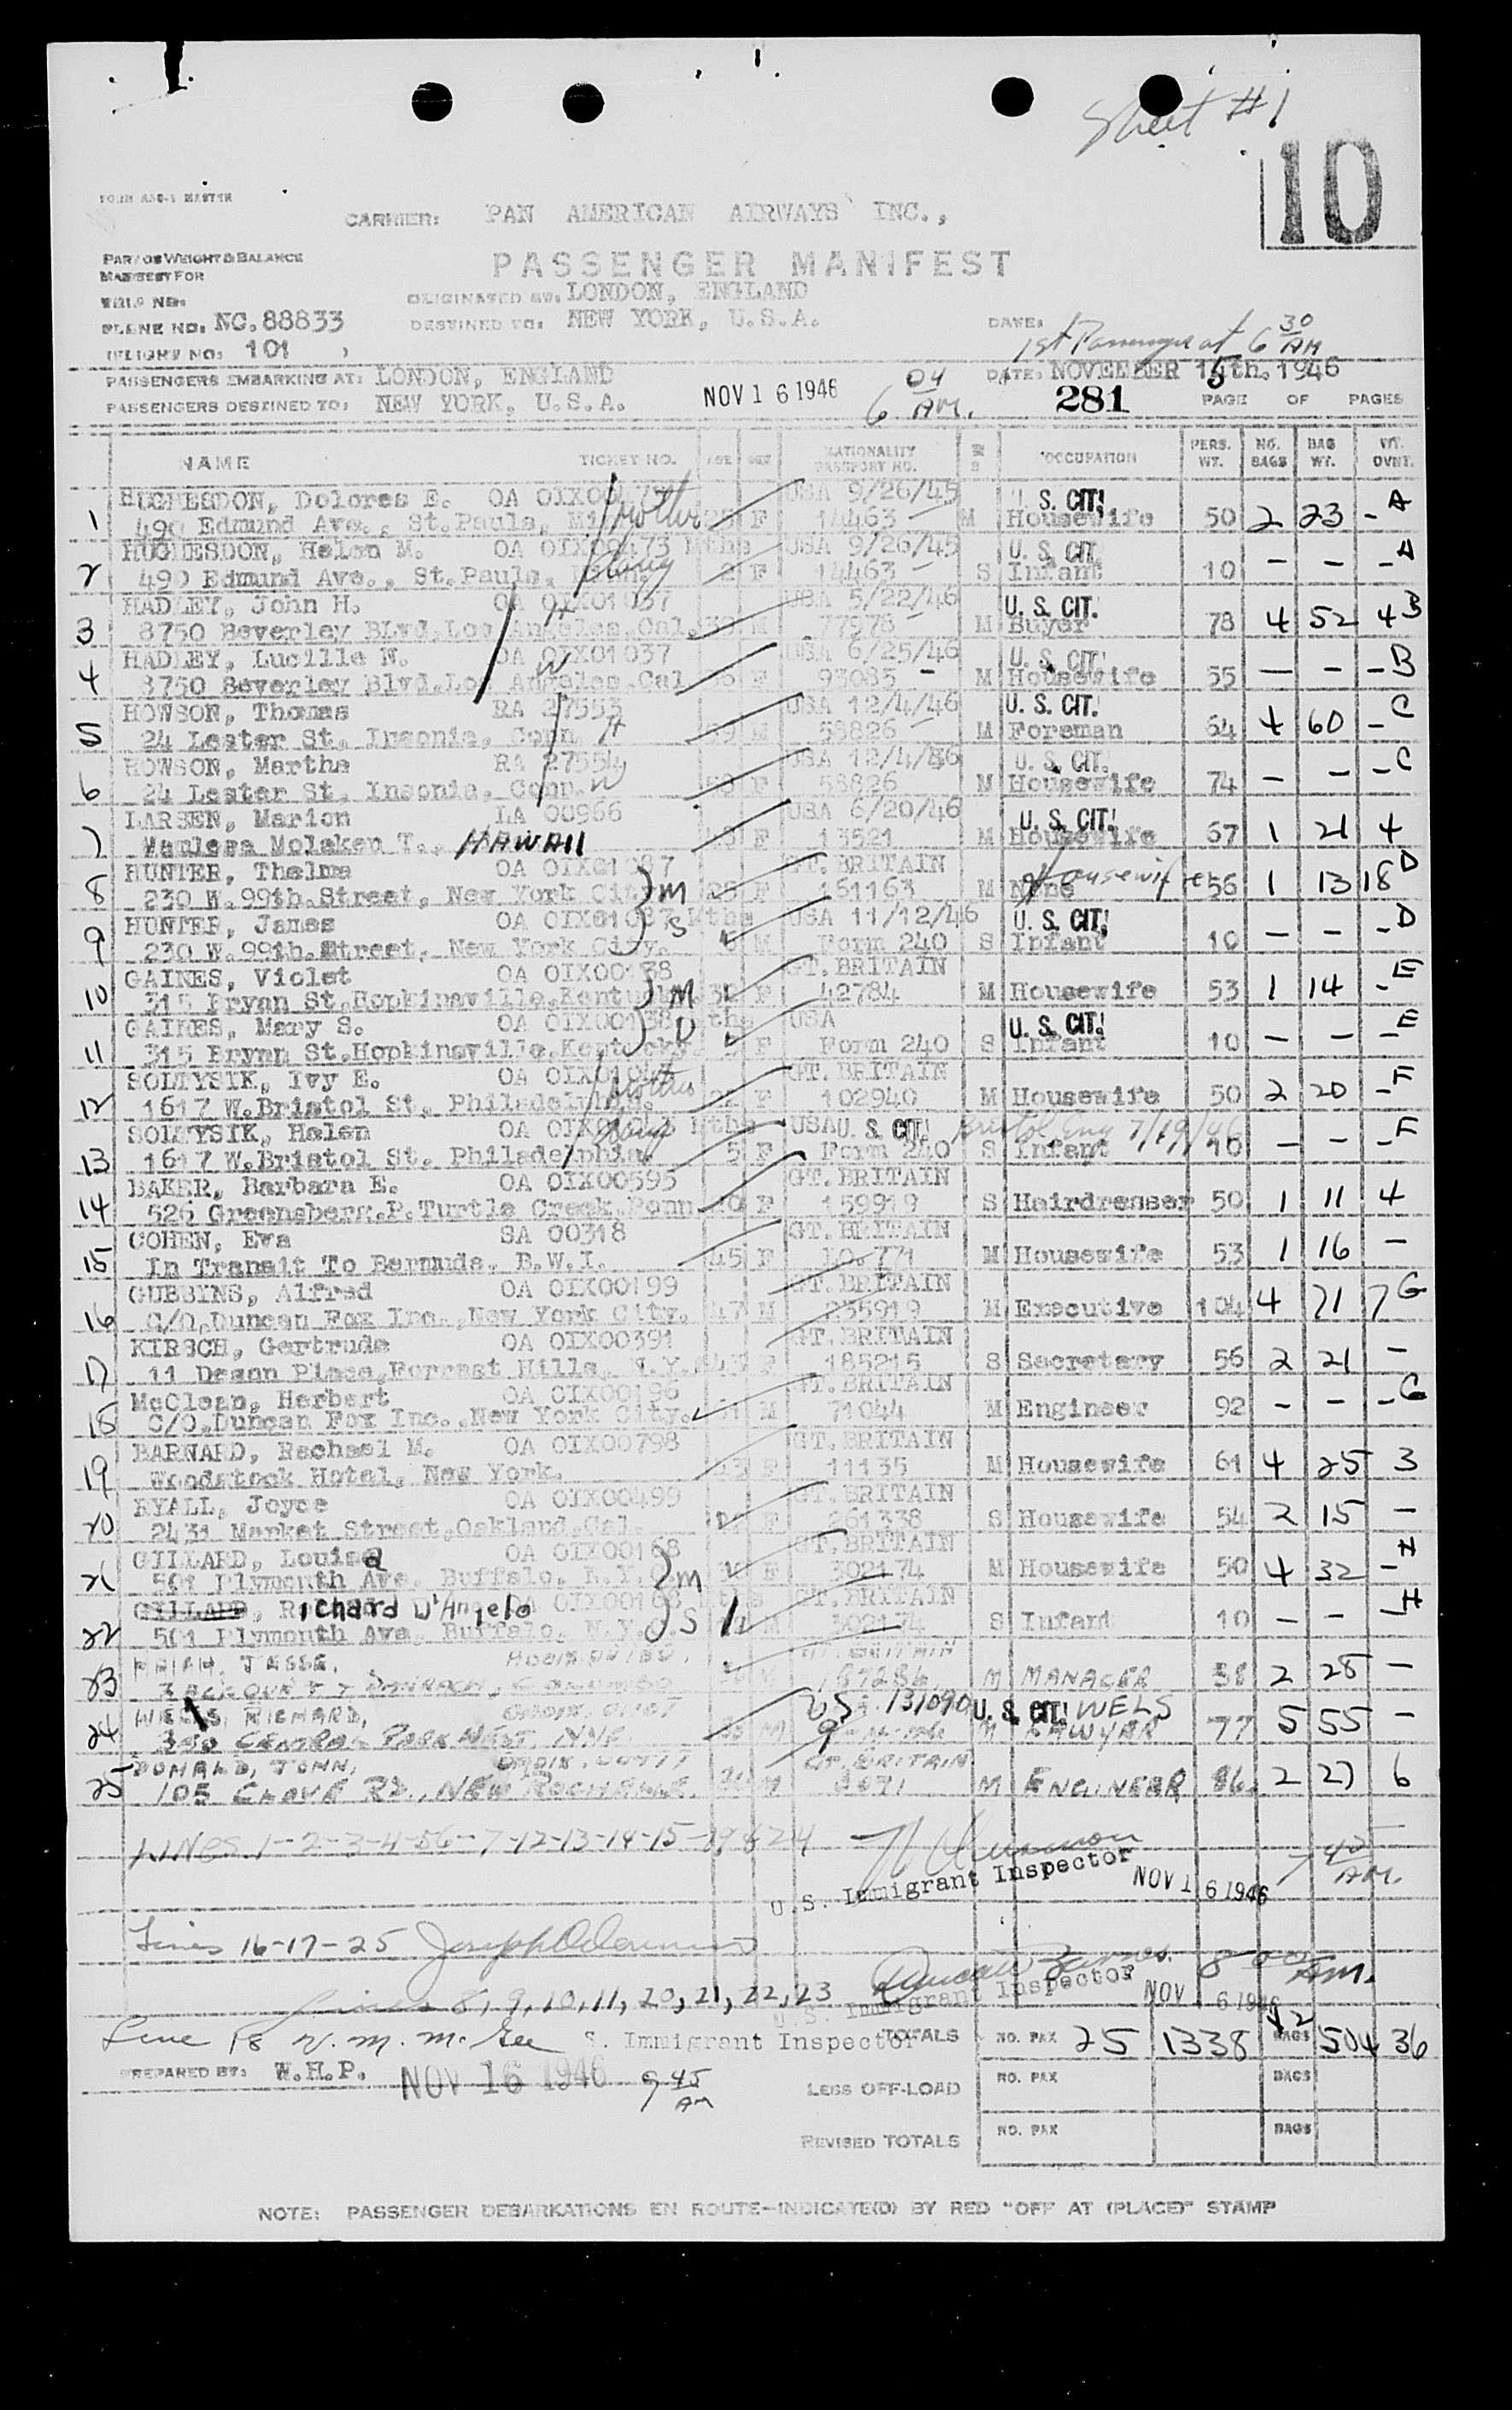 Sheet #1
10
FORM ASC-1 MASTER
CARRIER: PAN AMERICAN AIRWAYS INC.,
PART OF WEIGHT & BALANCE
MANIFEST FOR
PASSENGER MANIFEST
TRIP NO:
ORIGINATED AT: LONDON, ENGLAND
PLANE NO: NC. 88833
DESTINED TO: NEW YORK, U.S.A.
DATE:
1st Passenger at 6 30 AM
FLIGHT NO: 101
PASSENGERS EMBARKING AT: LONDON, ENGLAND
NOV 16 1946
6 04 AM.
DATE: NOVEMBER 15th. 1946
PASSENGERS DESTINED TO: NEW YORK, U.S.A.
281
PAGE OF PAGES
NAME TICKET NO. AGE SEX NATIONALITY PASSPORT NO. OCCUPATION PERS. WT. NO. BAGS BAG WT. WT. OVWT.
HUGHESDON, Dolores E. USA 9/26/45 U.S. CIT.
1 490 Edmund Ave., St.Pauls, Mother F 14463 M Housewife 50 2 23 - A
HUGHESDON, Helen M. OA OIX00473 Mths USA 9/26/45 U. S. CIT.
2 490 Edmund Ave., St.Pauls, 2 F 14463 S Infant 10 - - - A
HADLEY, John H. OA OIX01037 USA 5/22/46 U. S. CIT.
3 8750 Beverley BLvd,Los Angeles,Cal. M 77978 M Buyer 78 4 52 4 B
HADLEY, Lucille N. OA OIX01037 W USA 6/25/46 U. S. CIT.
4 8750 Beverley Blvd,Los Angeles,Cal F 93085 M Housewife 55 - - - B
HOWSON, Thomas RA 27553 USA 12/4/46 U. S. CIT.
5 24 Lester St, Insonia, Conn. H M 58826 M Foreman 64 4 60 - C
HOWSON, Martha RA 27554 USA 12/4/46 U. S. CIT.
6 24 Lester St, Insonia, Conn. W F 58826 M Housewife 74 - - - C
LARSEN, Marion LA 00966 USA 6/20/46 U. S. CIT.
7 HAWAII F 13521 M Housewife 67 1 21 4
HUNTER, Thelma OA OIX01037 GT. BRITAIN
8 230 W. 99th. Street, New York City M F 161163 M None Housewife 56 1 13 18 D
HUNTER, James OA OIX01037 Mths S USA 11/12/46 U. S. CIT.
9 230 W. 99th. Street, New York City. M Form 240 S Infant 10 - - - D
GAINES, Violet OA OIX00138 GT. BRITAIN
10 315 Bryan St,Hopkinsville,Kentucky M F 42784 M Housewife 53 1 14 - E
GAINES, Mary S. OA OIX00138 Mths D USA U. S. CIT.
11 315 Bryan St,Hopkinsville,Kentucky. F Form 240 S Infant 10 - - - E
SOLTYSIK, Ivy E. GT. BRITAIN
12 1617 W.Bristol St, Philadelphia. 22 F 102940 M Housewife 50 2 20 - F
SOLTYSIK, Helen Mths USA U. S. CIT. Bristol Eng 7/19/46
13 1617 W.Bristol St, Philadelphia. 5 F Form 240 S Infant 10 - - - F
BAKER, Barbara E. OA OIX00595 GT. BRITAIN
14 526 Greensberg.P.Turtle Creek.Penn F 159919 S Hairdresser 50 1 11 4
COHEN, Eva SA 00318 GT. BRITAIN
15 In Transit To Bermuda. B.W.I. 45 F 10.771 M Housewife 53 1 16 -
GUBBINS, Alfred OA OIX00199 GT. BRITAIN
16 C/O,Duncan Fox Inc.,New York City. 47 M 235919 M Executive 104 4 71 7 G
KIRSCH, Gertrude OA OIX00391 GT. BRITAIN
17 11 Place,Forrest Hills, N.Y. F 185215 S Secretary 56 2 21 -
McClean, Herbert OA OIX00196 GT. BRITAIN
18 C/O,Duncan Fox Inc.,New York City. M 71044 M Engineer 92 - - - G
BARNARD, Rachael M. OA OIX00798 GT. BRITAIN
19 Woodstock Hotel, New York. F 11135 M Housewife 61 4 25 3
RYALL, Joyce OA OIX00499 GT. BRITAIN
20 2431 Market Street,Oakland,Cal. F 261338 S Housewife 54 2 15 -
GILLARD, Louisa OA OIX00168 GT. BRITAIN
21 501 Plymouth Ave. Buffalo, N.Y. M F 302174 M Housewife 50 4 32 - H
GILLARD, Richard D'Angelo OA OIX00168 GT. BRITAIN
22 501 Plymouth Ave. Buffalo, N.Y. S M 302174 S Infant 10 - - - H
JESSE, GT. BRITAIN
23 187286 M MANAGER 58 2 28 -
RICHARD, US 131090 U. S. CIT. WELS
24 CENTRAL PARK WEST. NYC M M LAWYER 77 5 55 -
DONALD, JOHN, GT. BRITAIN
25 105 CLOVE RD., NEW ROCHELLE. M M ENGINEER 86 2 27 6
LINES 1-2-3-4-56-7-12-13-14-15-19&24
U.S. Immigrant Inspector NOV 16 1946 7 45 AM.
Lines 16-17-25
Duncan Barnes 8 00 AM.
Lines 8, 9, 10, 11, 20, 21, 22, 23 U.S. Immigrant Inspector NOV 16 1946
Line 18 W. M. McGee S. Immigrant Inspector
TOTALS NO. PAX 25 1338 42 BAGS 504 36
PREPARED BY: W.H.P. NOV 16 1946 9 45 AM
LESS OFF-LOAD NO. PAX BAGS
REVISED TOTALS NO. PAX BAGS
NOTE: PASSENGER DEBARKATIONS EN ROUTE-INDICATE(D) BY RED "OFF AT (PLACE)" STAMP